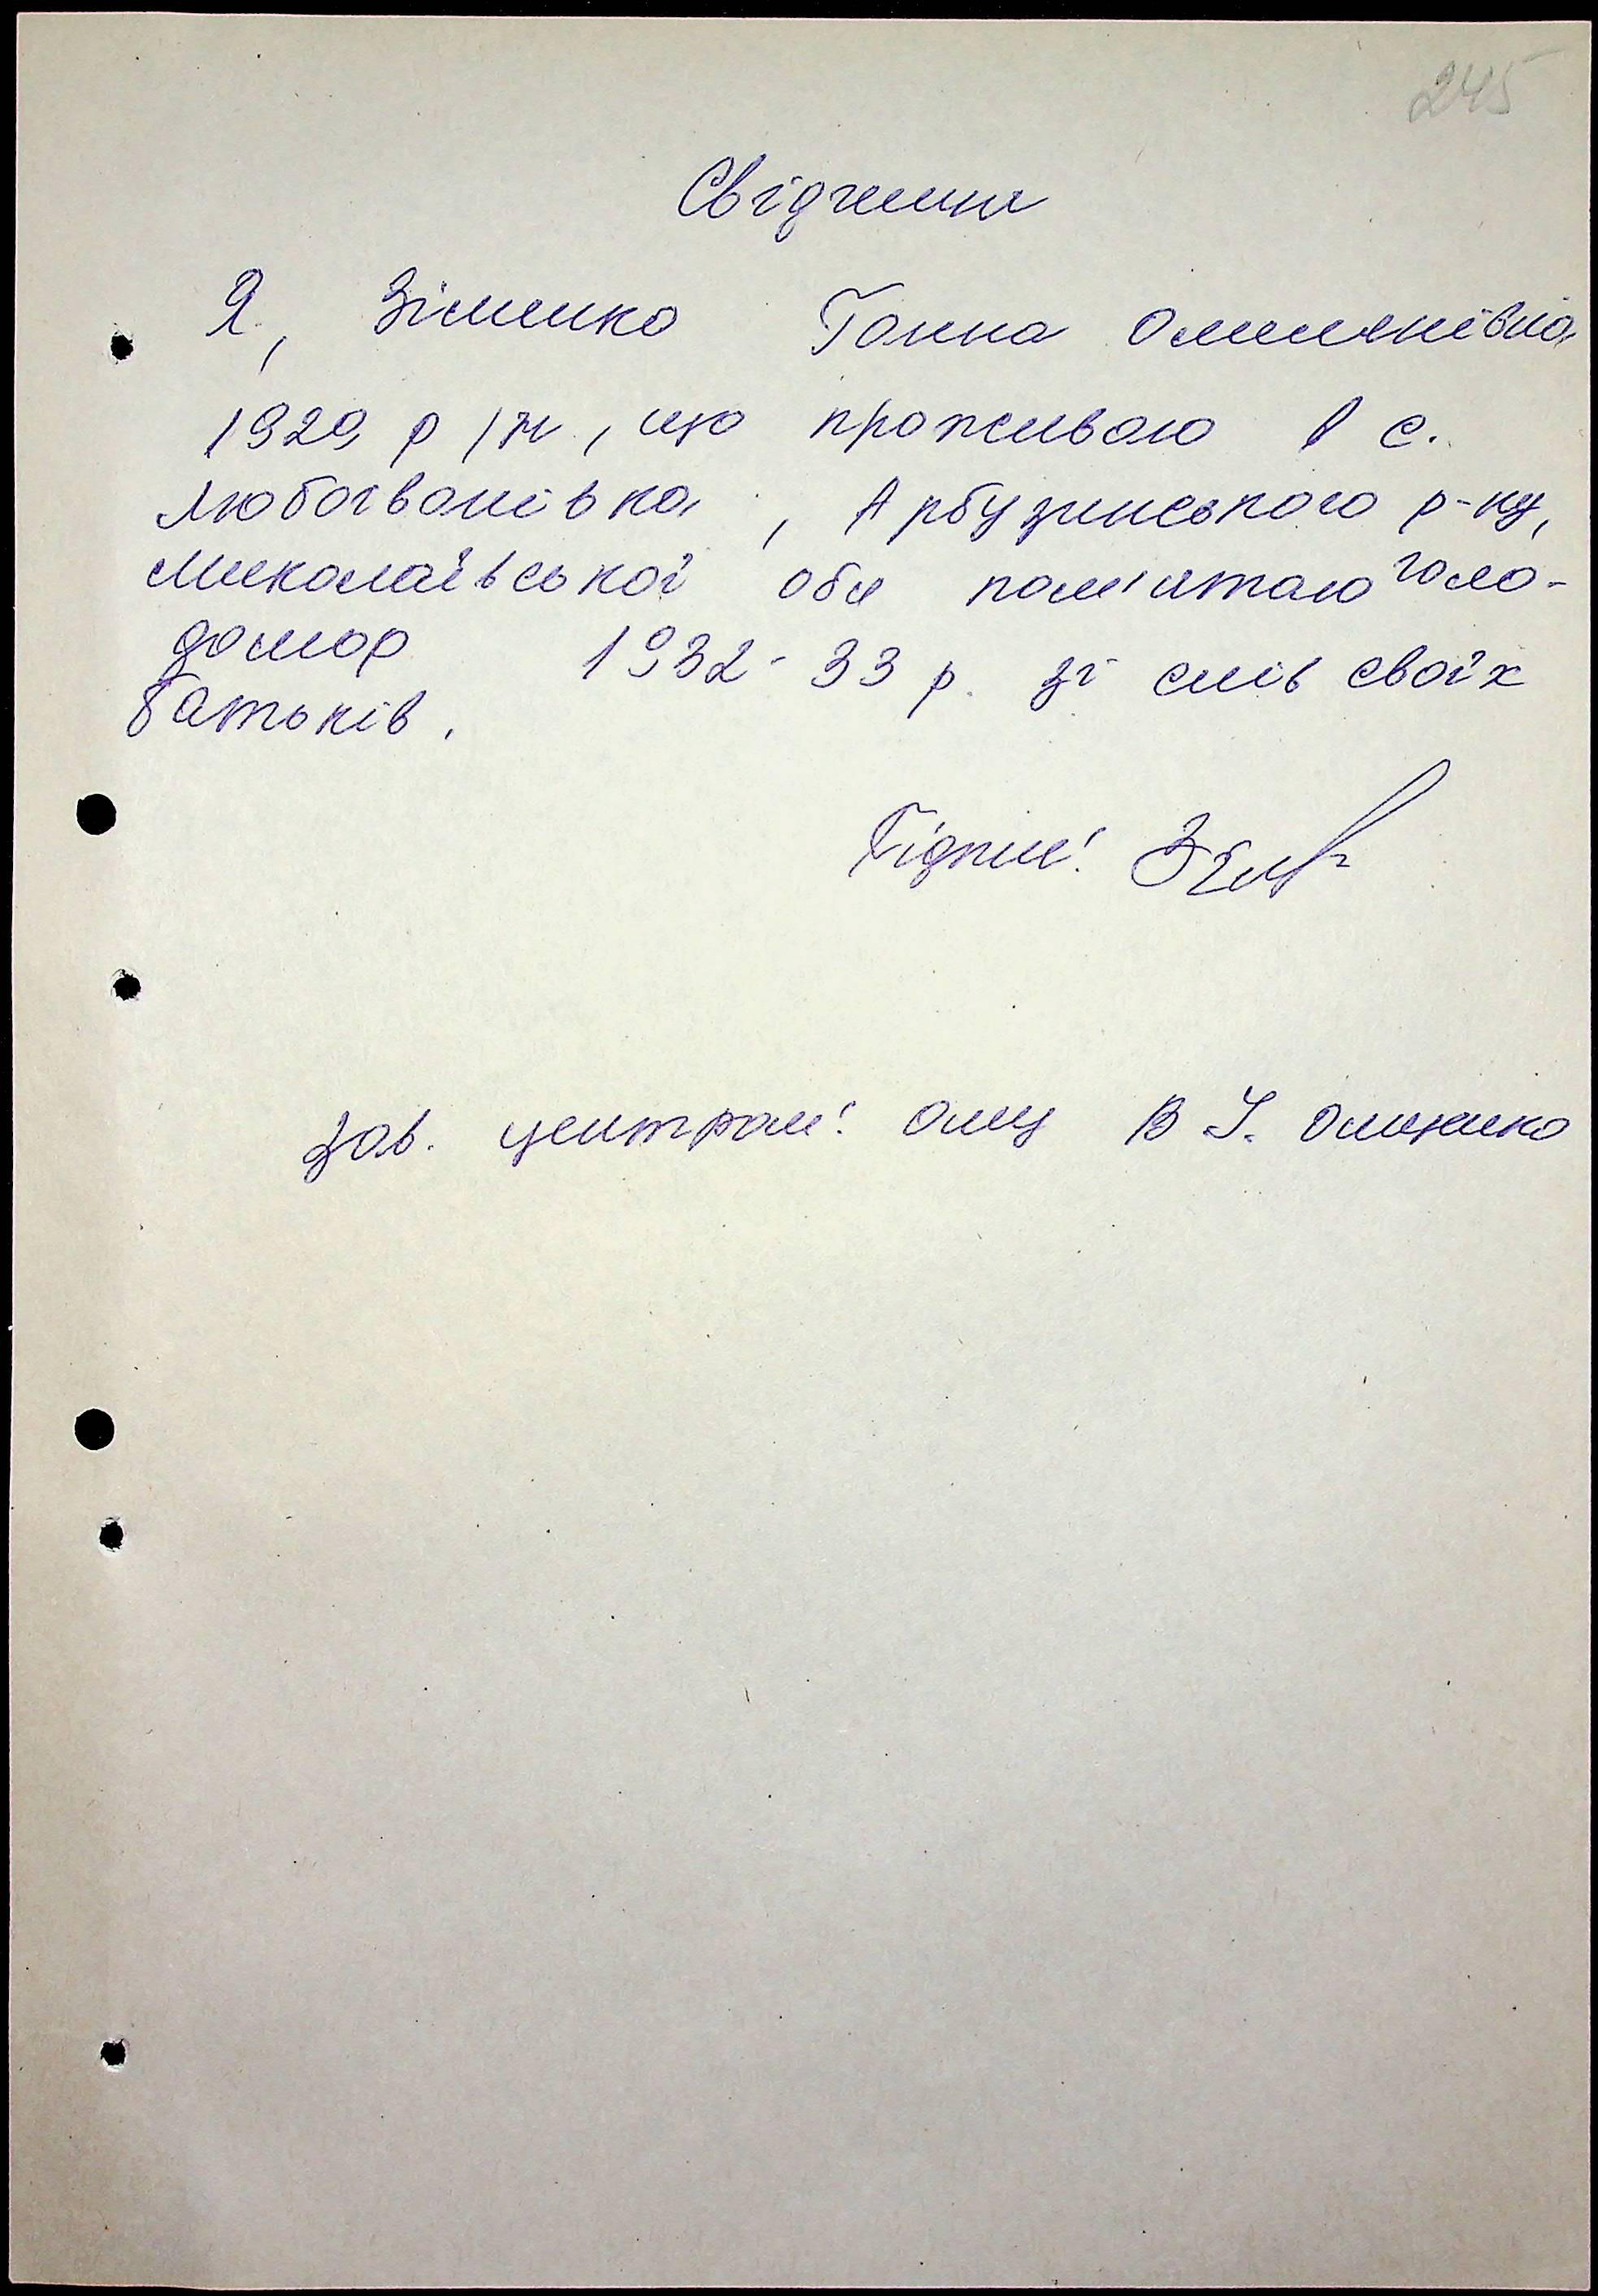 245
Свідчення
Я, Зіменко Ганна Омелянівна
1929 р/н, що проживаю в с.
Любоіванівка, Арбузинського р-ну,
Миколаївської обл пам'ятаю голо-
домор 1932-33 р. зі слів своїх
батьків.
Підпис:
Зав. центром: В І. Онищенко